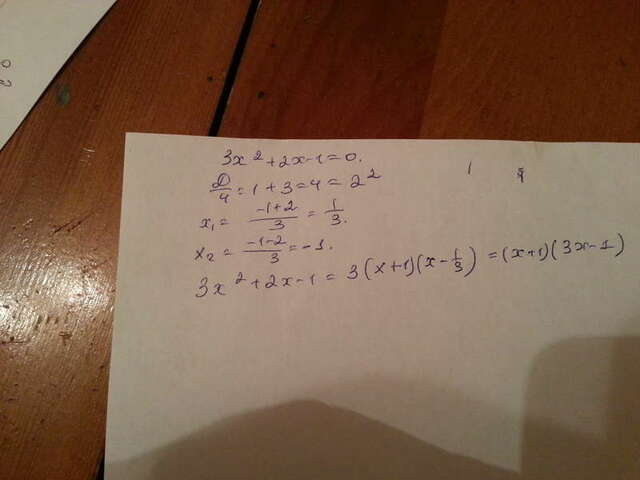 3x² + 2x - 1 = 0.
D/4 = 1 + 3 = 4 = 2²
x₁ = (-1+2)/3 = 1/3.
x₂ = (-1-2)/3 = -1.
3x² + 2x - 1 = 3(x+1)(x - 1/3) = (x+1)(3x - 1)